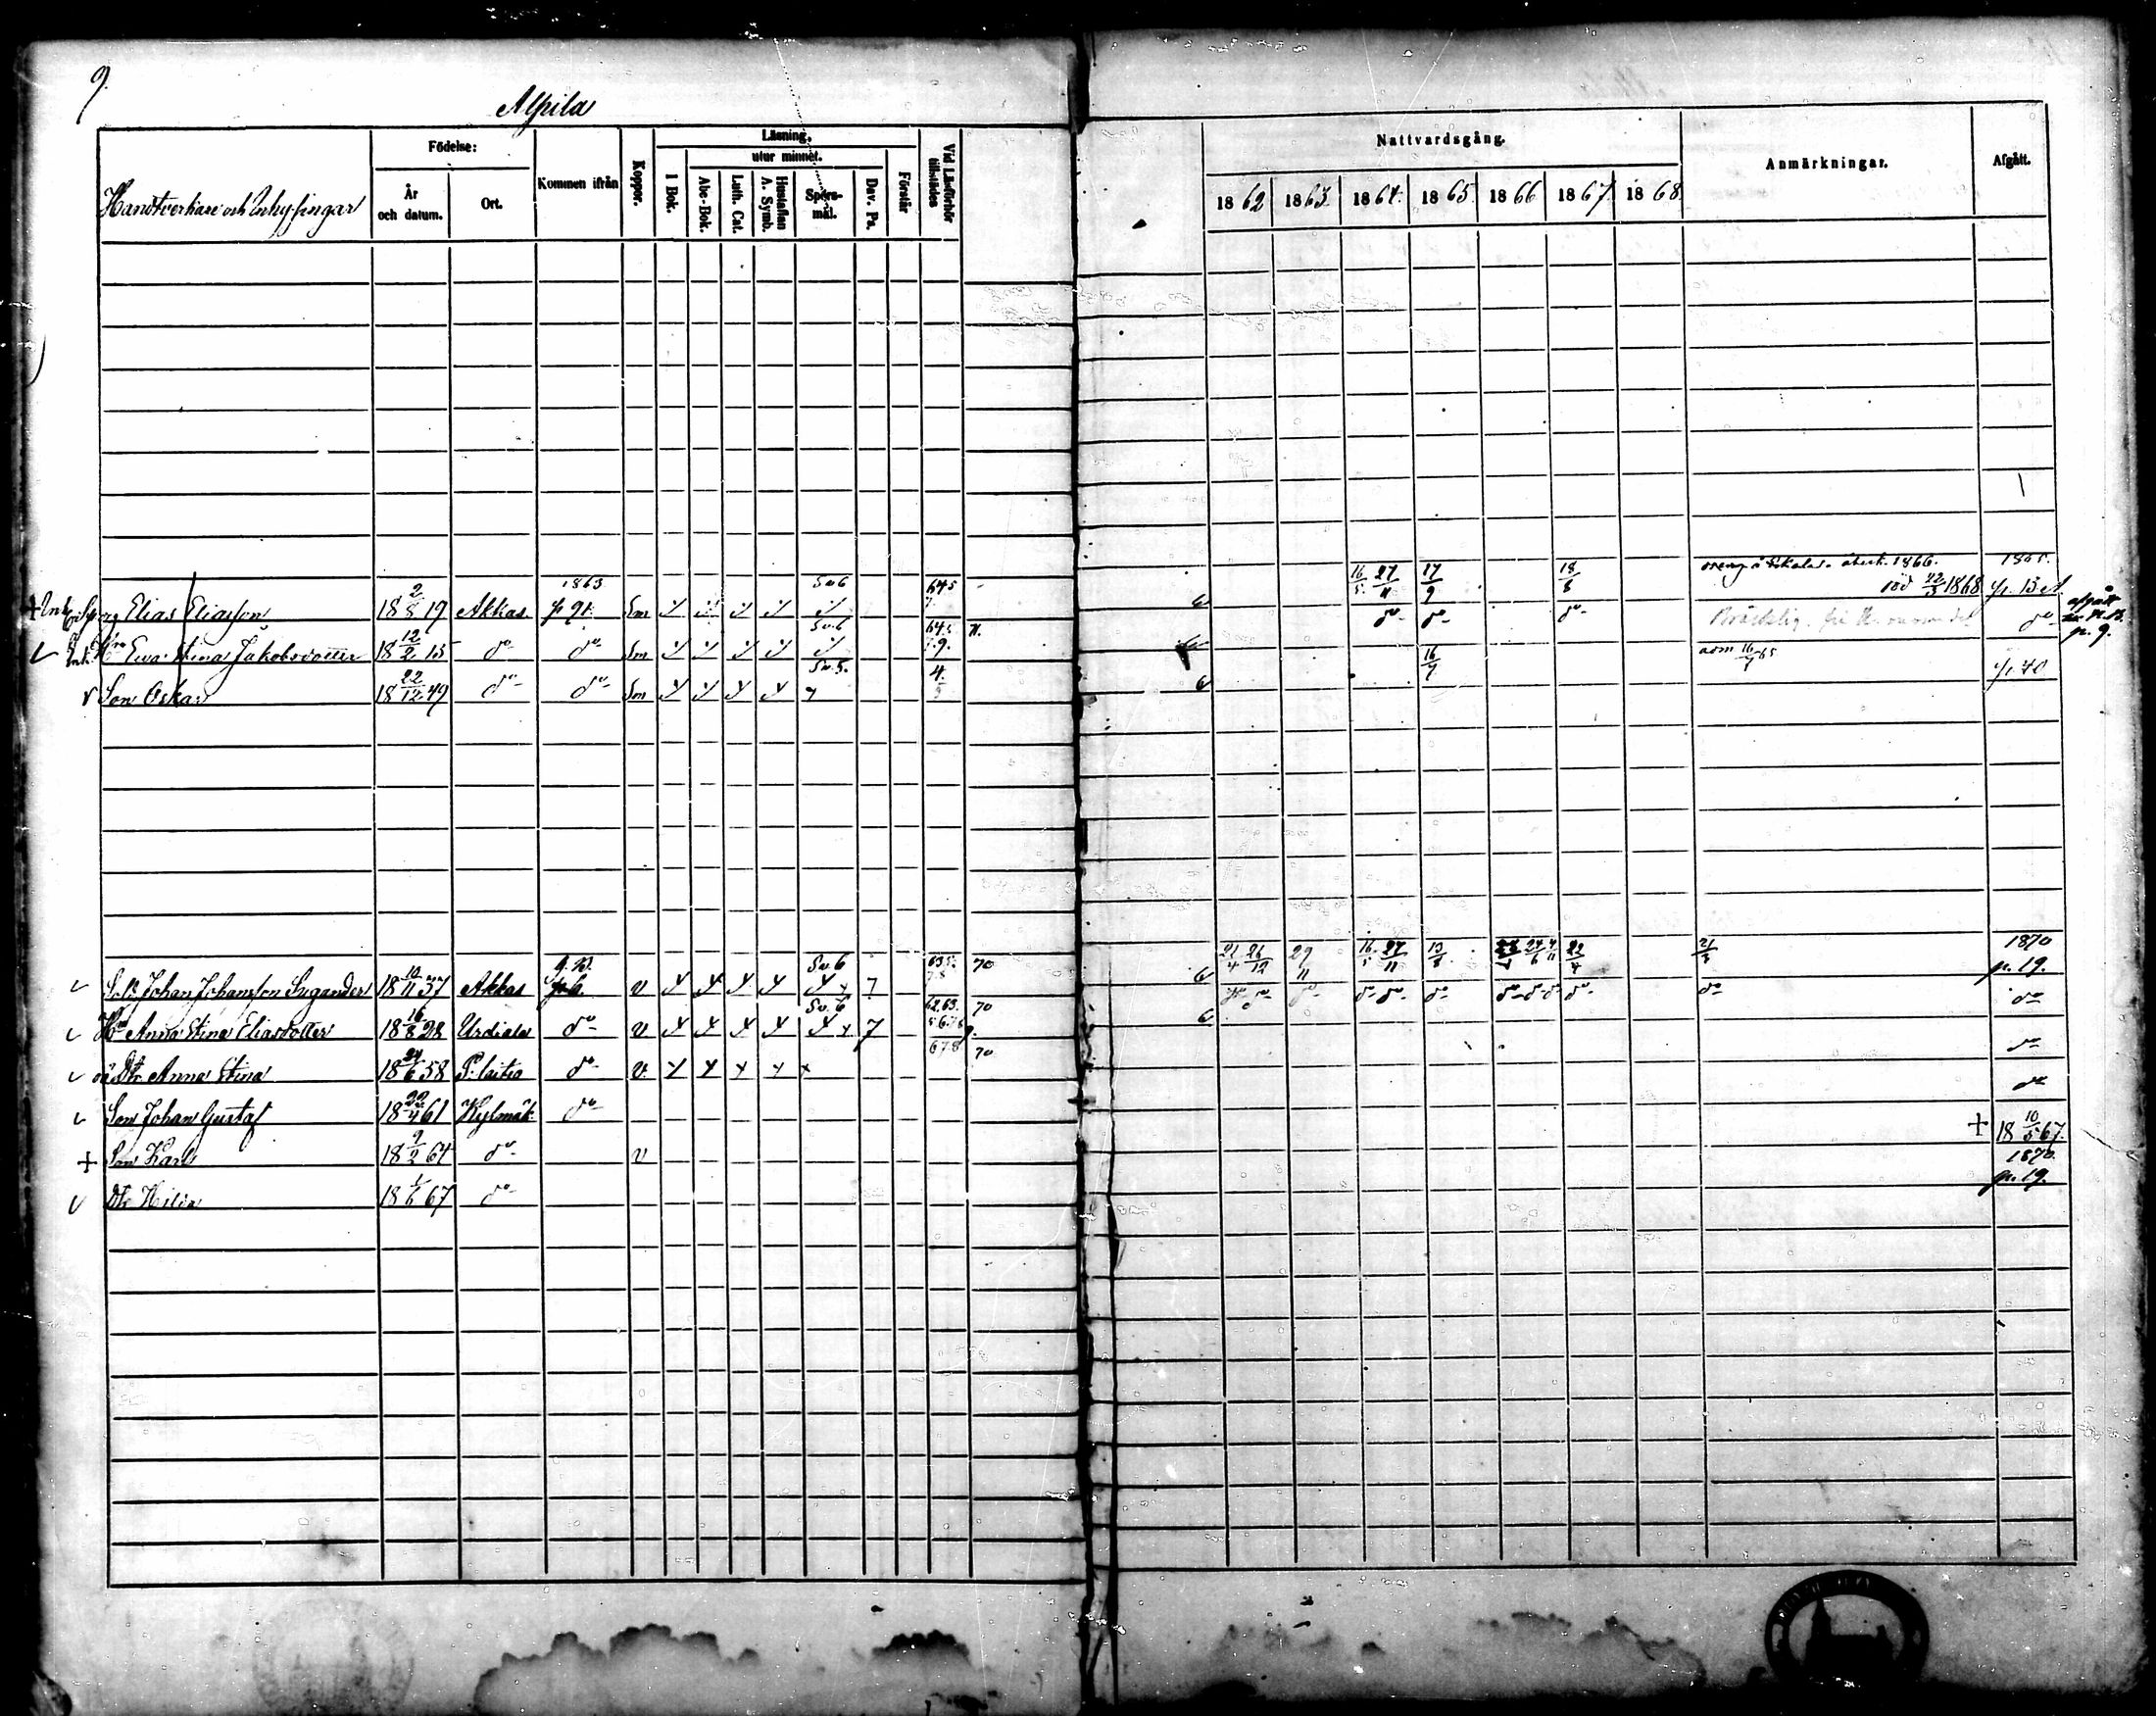 9.
Alpila
Handtverkare och Inhysingar
Födelse:
År och datum.
Ort.
Kommen ifrån
Koppor.
Läsning.
utur minnet.
I Bok.
Abc-Bok.
Luth. Cat.
Hustaflan A. Symb.
Spörs-mål.
Dav. Ps.
Förstår
Vid Läsförhör tillstädes
Nattvardsgång.
1862 1863 1864 1865 1866 1867 1868
Anmärkningar.
Afgått.
Elias Eliasson 18 2/8 19 Akkas 1863 p 91. Sm Sv 6 645 7 16/5 27/11 17/9 18/8 1866. död 1868 1865. p. 13
Inh. Hu Ewa Stina Jakobsdotter 18 12/2 15 do do Sm Sv. 6 645 7.9. do do do do p. 9.
v Son Oskar 18 22/12 49 do do Sm Sv. 5. 4. 16/7 adm 16/7 65 p. 40
Johan Johansson Sugander 18 10/11 37 Akkas p. 6. v Sv. 6 7 70 6 21/4 26/12 29/11 16/5 27/11 13/8 22/4 21/3 1870 p. 19.
Hu Anna Stina Eliasdotter 18 16/8 28 Urdiala do v Sv. 6 7 62.63. 5.6.7.8 9. 70 6 do do do do do do do do do
oä Dtr Anna Stina 18 24/6 58 P. laitio do v. 678 70 do
Son Johan Gustaf 18 22/4 61 Kylmäk. do do
+ Son Karl 18 9/2 64 do v + 18 10/5 67.
v Dtr Hilda 18 1/6 67 do 1870. p. 19.